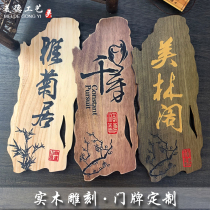 美德工艺
MEI DE GONG YI
淮菊居
Constant
Pursuit
美林阁
实木雕刻·门牌定制